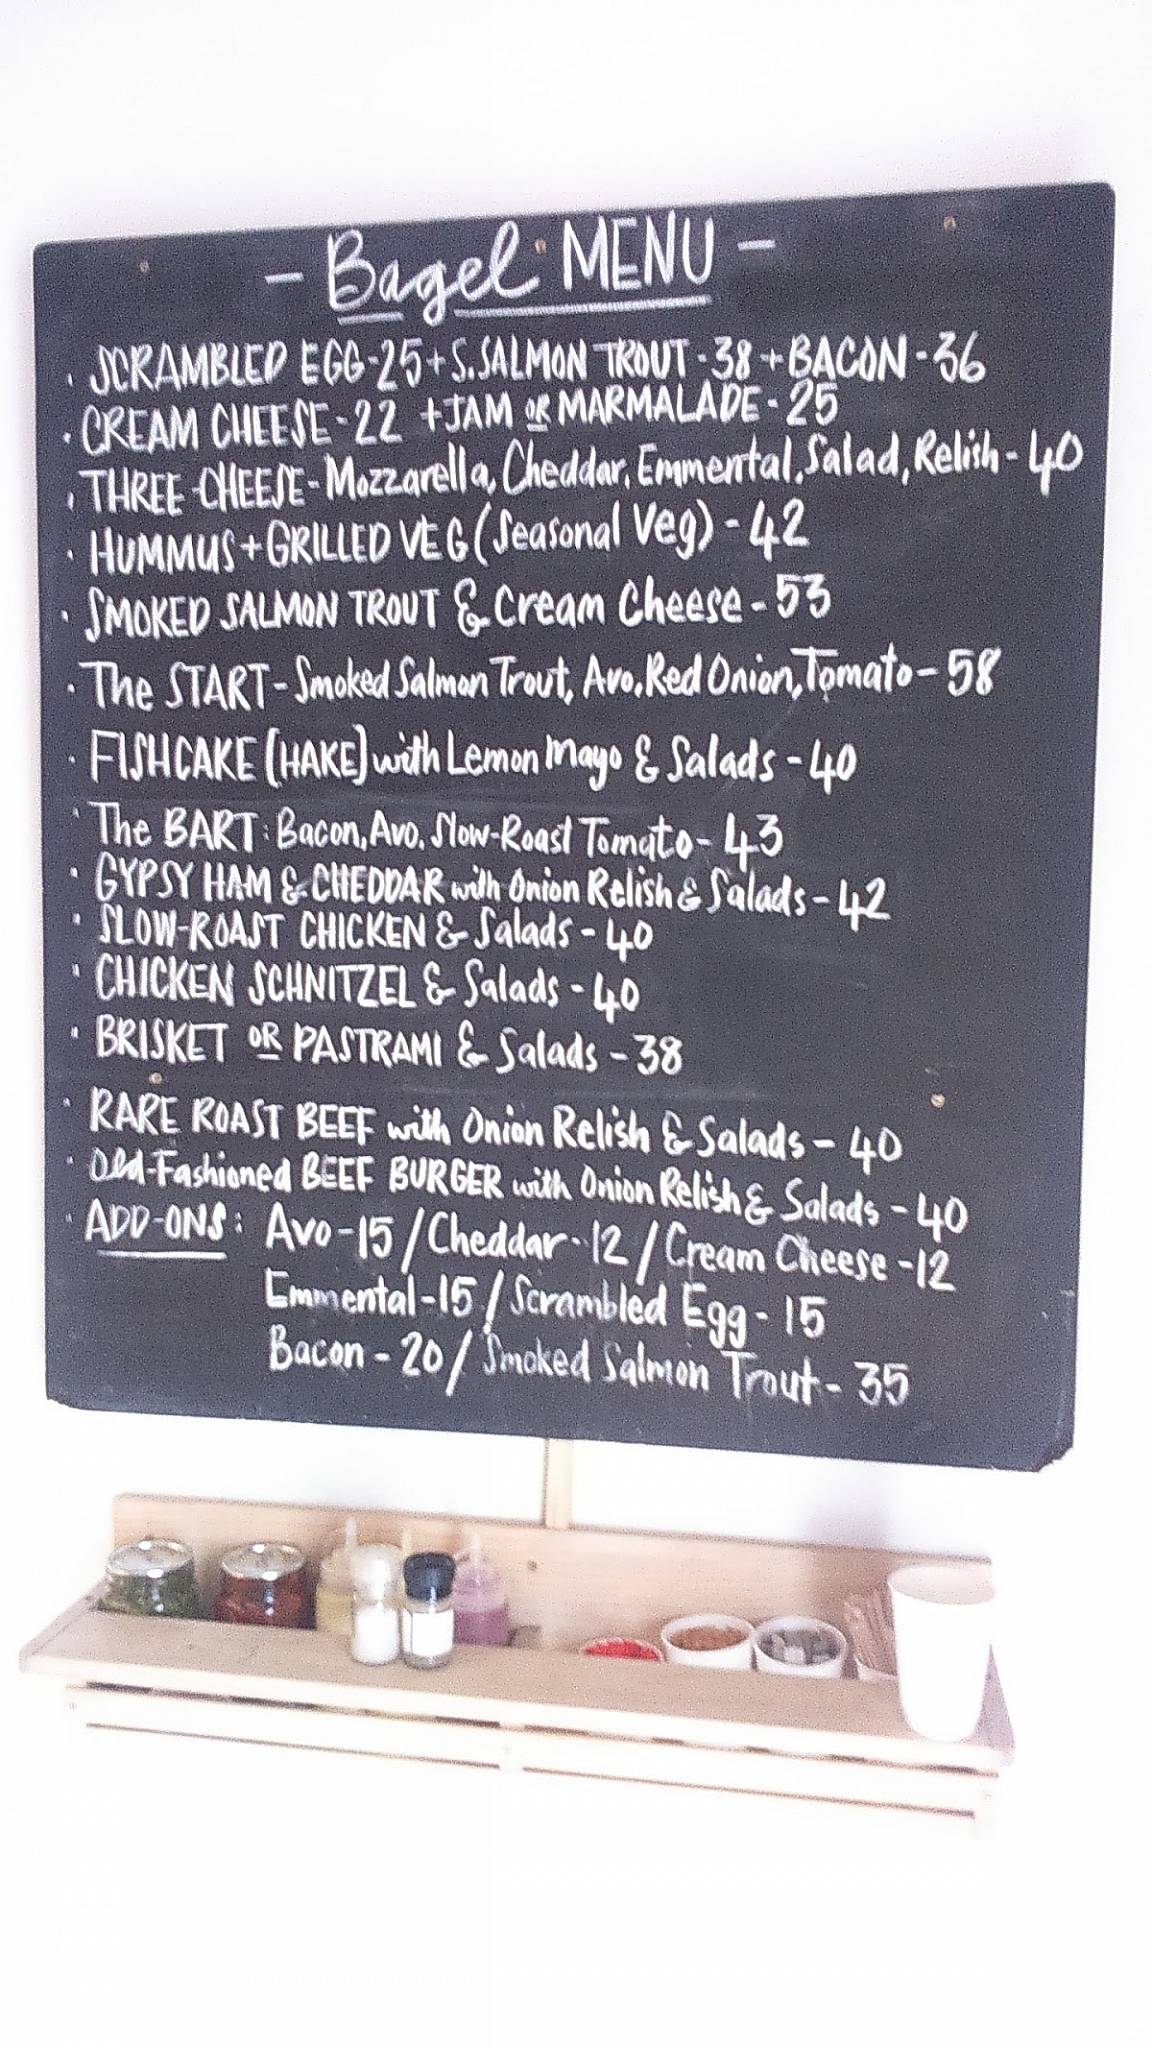 - Bagel MENU -
· SCRAMBLED EGG-25+S.SALMON TROUT-38+BACON-36
· CREAM CHEESE-22 +JAM OR MARMALADE-25
· THREE CHEESE-Mozzarella, Cheddar, Emmental, Salad, Relish-40
· HUMMUS+GRILLED VEG (Seasonal Veg)-42
· SMOKED SALMON TROUT & Cream Cheese-53
· The START-Smoked Salmon Trout, Avo, Red Onion, Tomato-58
· FISHCAKE (HAKE) with Lemon Mayo & Salads-40
· The BART: Bacon, Avo, Slow-Roast Tomato-43
· GYPSY HAM & CHEDDAR with Onion Relish & Salads-42
· SLOW-ROAST CHICKEN & Salads-40
· CHICKEN SCHNITZEL & Salads-40
· BRISKET OR PASTRAMI & Salads-38
· RARE ROAST BEEF with Onion Relish & Salads-40
· Old-Fashioned BEEF BURGER with Onion Relish & Salads-40
· ADD-ONS: Avo-15/Cheddar-12/Cream Cheese-12
Emmental-15/Scrambled Egg-15
Bacon-20/Smoked Salmon Trout-35